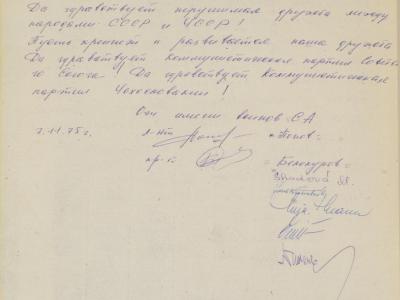 Да здравствует нерушимая дружба между
народами СССР и ЧССР!
Пусть крепнет и развивается наша дружба
Да здравствует Коммунистическая партия Советско
го Союза! Да здравствует Коммунистическая
партия Чехословакии!
От имени воинов СА
7.11.75 г. л-нт =Попов=
пр-к =Белокуров=